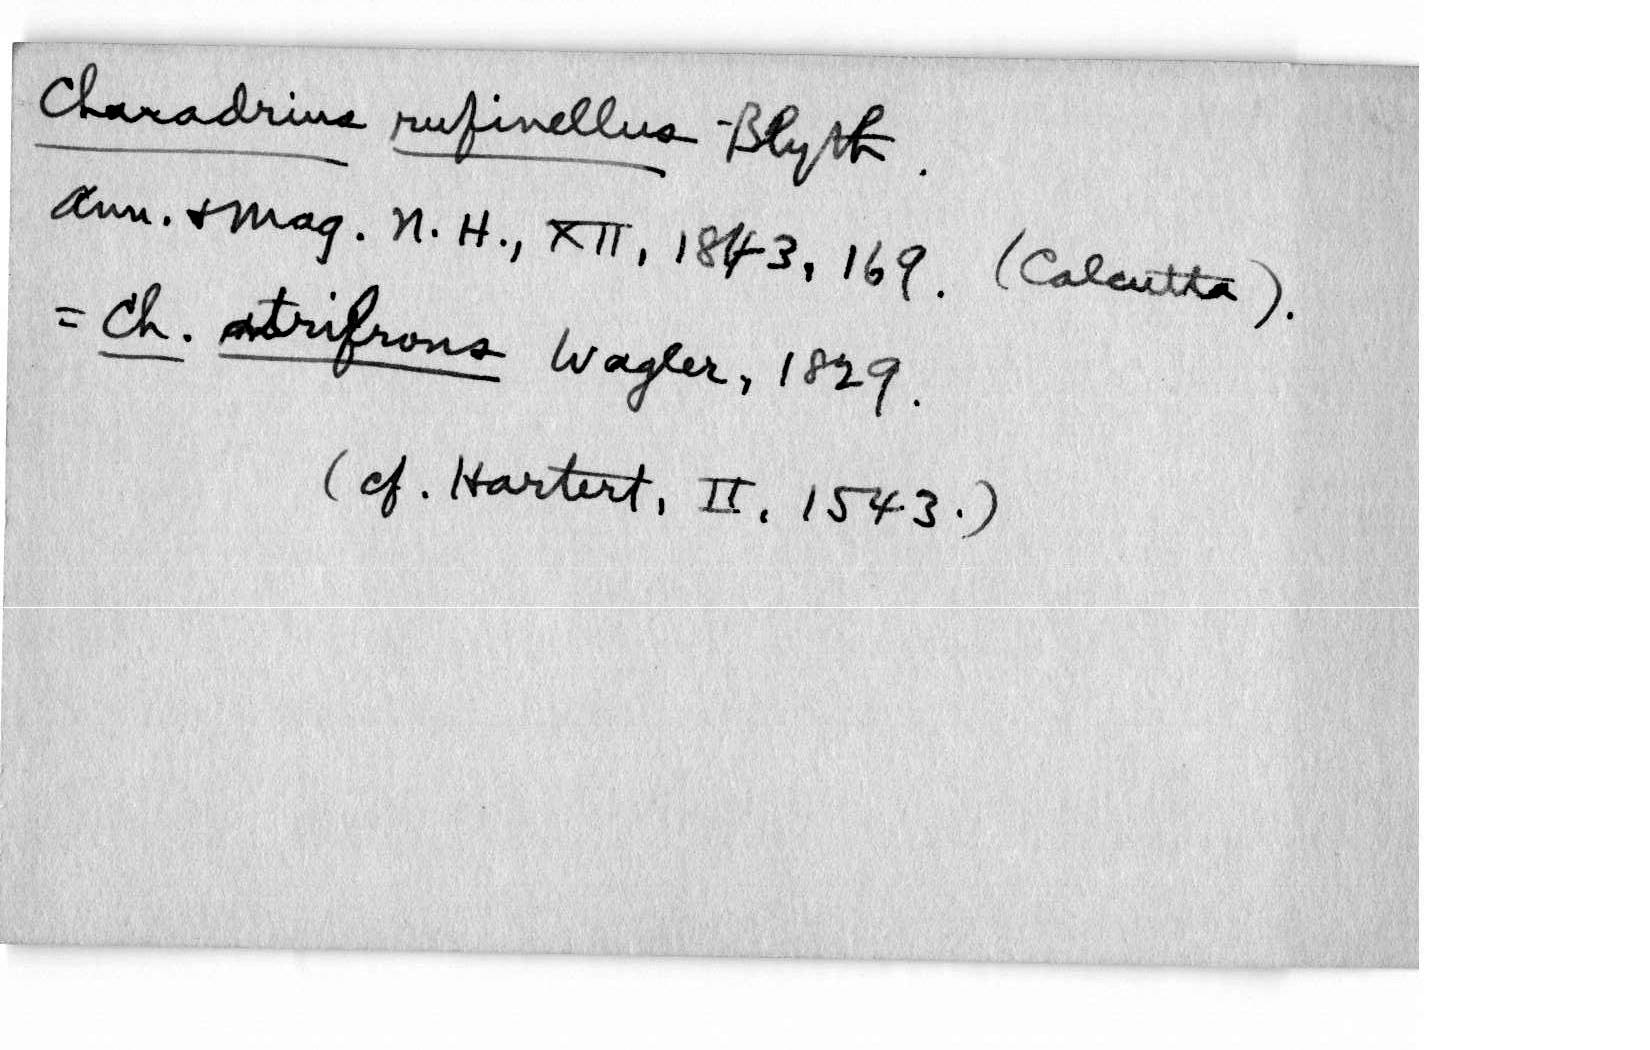 Charadrius rufinellus Blyth.
Ann. & Mag. N. H., XII, 1843, 169. (Calcutta).
= Ch. atrifrons Wagler, 1829.
(cf. Hartert, II, 1543.)